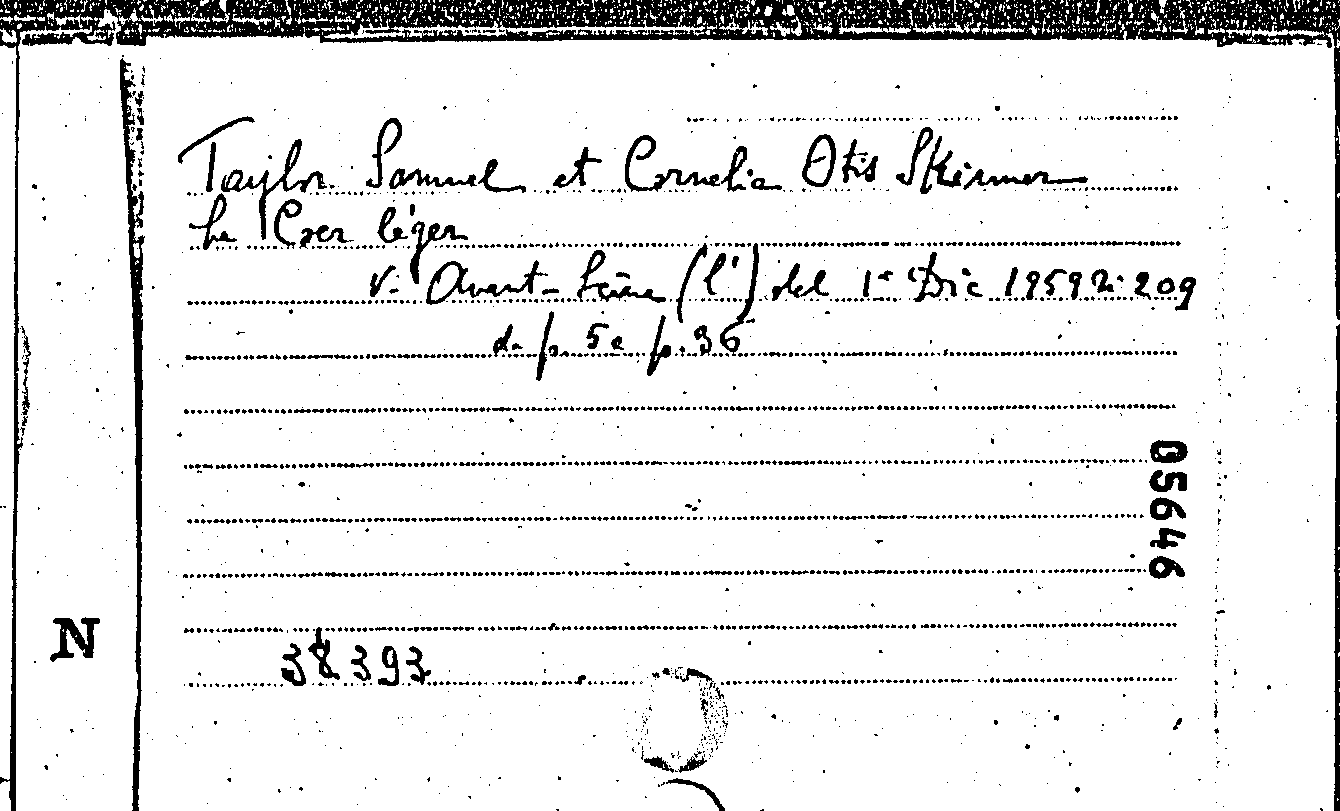 Taylor Samuel et Cornelia Otis Skinner
Le Coeur léger
V. Avant-Scène (l') del 1° Dic 1959 N. 209
da p. 5 a p. 36
05646
N
38393